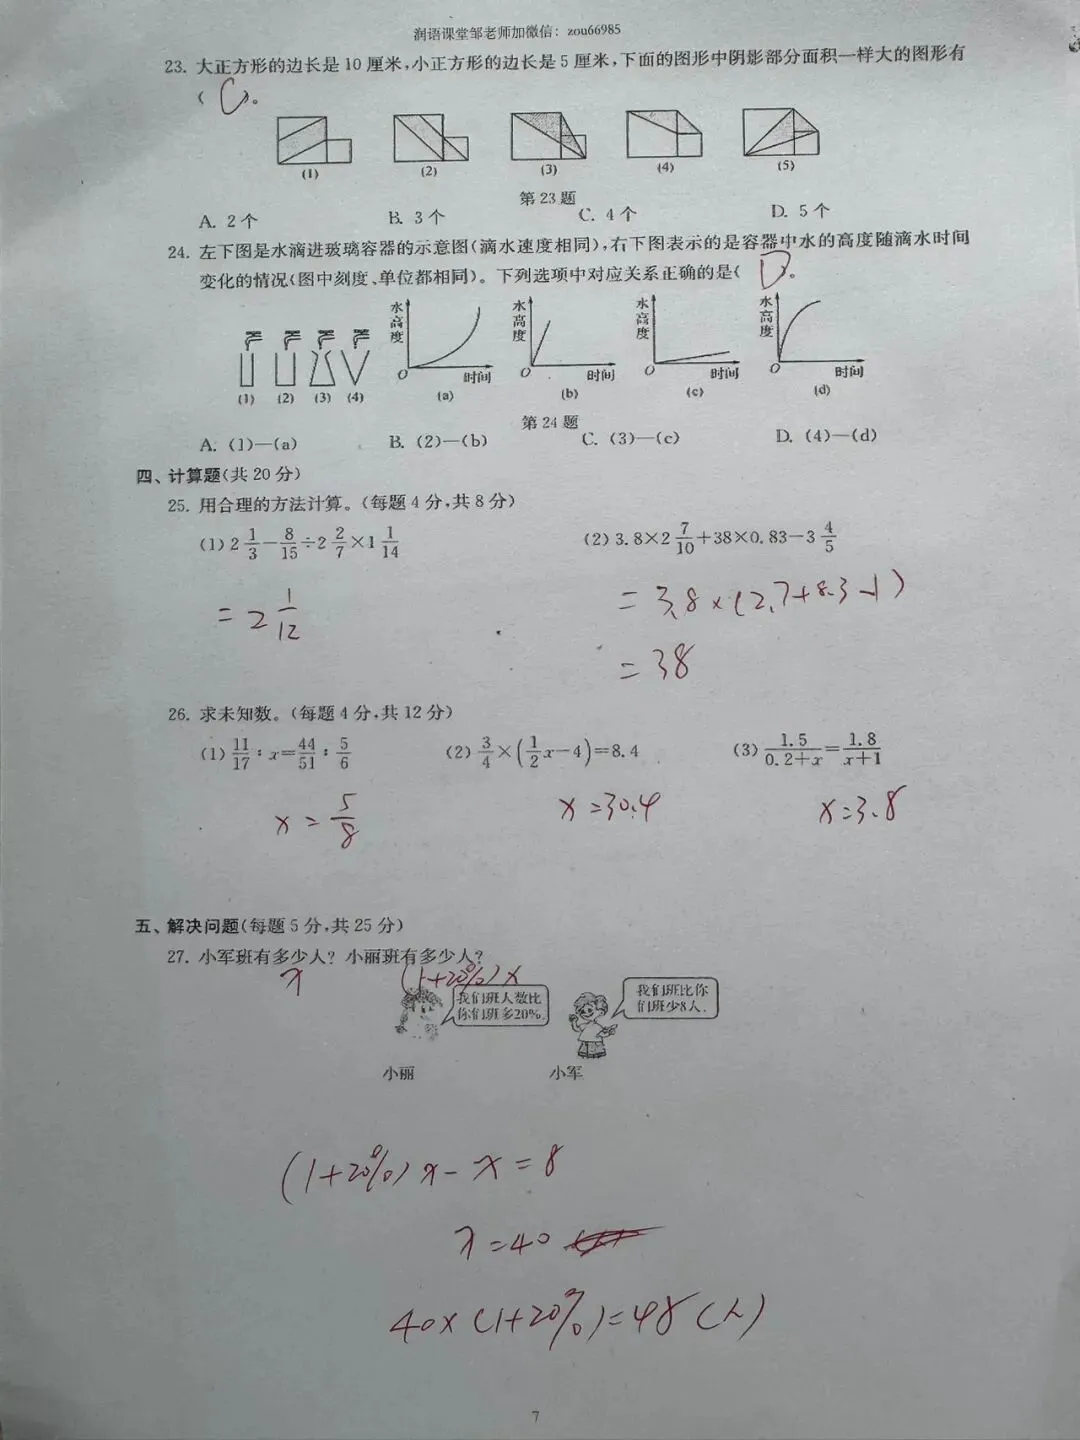 润语课堂邹老师加微信：zou66985
23. 大正方形的边长是10厘米,小正方形的边长是5厘米,下面的图形中阴影部分面积一样大的图形有
( C )。
(1) (2) (3) (4) (5)
第23题
A. 2个 B. 3个 C. 4个 D. 5个
24. 左下图是水滴进玻璃容器的示意图(滴水速度相同),右下图表示的是容器中水的高度随滴水时间
变化的情况(图中刻度、单位都相同)。下列选项中对应关系正确的是( D )。
水高度 水高度 水高度 水高度
O 时间 O 时间 O 时间 O 时间
(1) (2) (3) (4) (a) (b) (c) (d)
第24题
A. (1)—(a) B. (2)—(b) C. (3)—(c) D. (4)—(d)
四、计算题(共20分)
25. 用合理的方法计算。(每题4分,共8分)
(1) 2 1/3 − 8/15 ÷ 2 2/7 × 1 1/14 (2) 3.8×2 7/10 +38×0.83−3 4/5
= 2 1/12 = 3.8×(2.7+8.3−1)
= 38
26. 求未知数。(每题4分,共12分)
(1) 11/17 : x = 44/51 : 5/6 (2) 3/4 ×(1/2 x−4)=8.4 (3) 1.5/(0.2+x) = 1.8/(x+1)
x = 5/8 x = 30.4 x = 3.8
五、解决问题(每题5分,共25分)
27. 小军班有多少人? 小丽班有多少人?
x (1+20%)x
我们班人数比
你们班多20%.
我们班比你
们班少8人.
小丽 小军
(1+20%)x − x = 8
x = 40
40×(1+20%)=48(人)
7